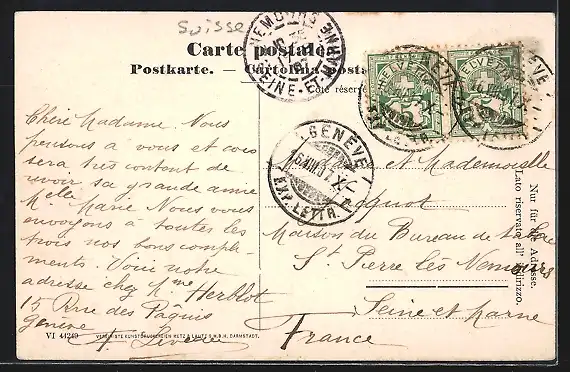 Suisse
Carte postale.
Postkarte. — Cartolina posta
Côté réservé
NEMOURS
SEINE-ET-MARNE
HELVETIA
HELVETIA
GENÈVE
EXP. LETTR.
Chère Madame. Nous
pensons à vous et
sera très content de
revoir sa grande amie
Melle Marie Nous vous
envoyons à toutes les
trois nos bons compli-
ments. Voici notre
adresse chez Mme Herblot
15 Rue des Pâquis
Genève
et Mademoiselle
Maison du Bureau de
St Pierre lès Nemours
Seine et Marne
France
Nur für die Adresse.
Lato riservato all' indirizzo.
VI 44249
VEREINIGTE KUNSTDRUCKEREIEN METZ & LAUTZ G.M.B.H. DARMSTADT.